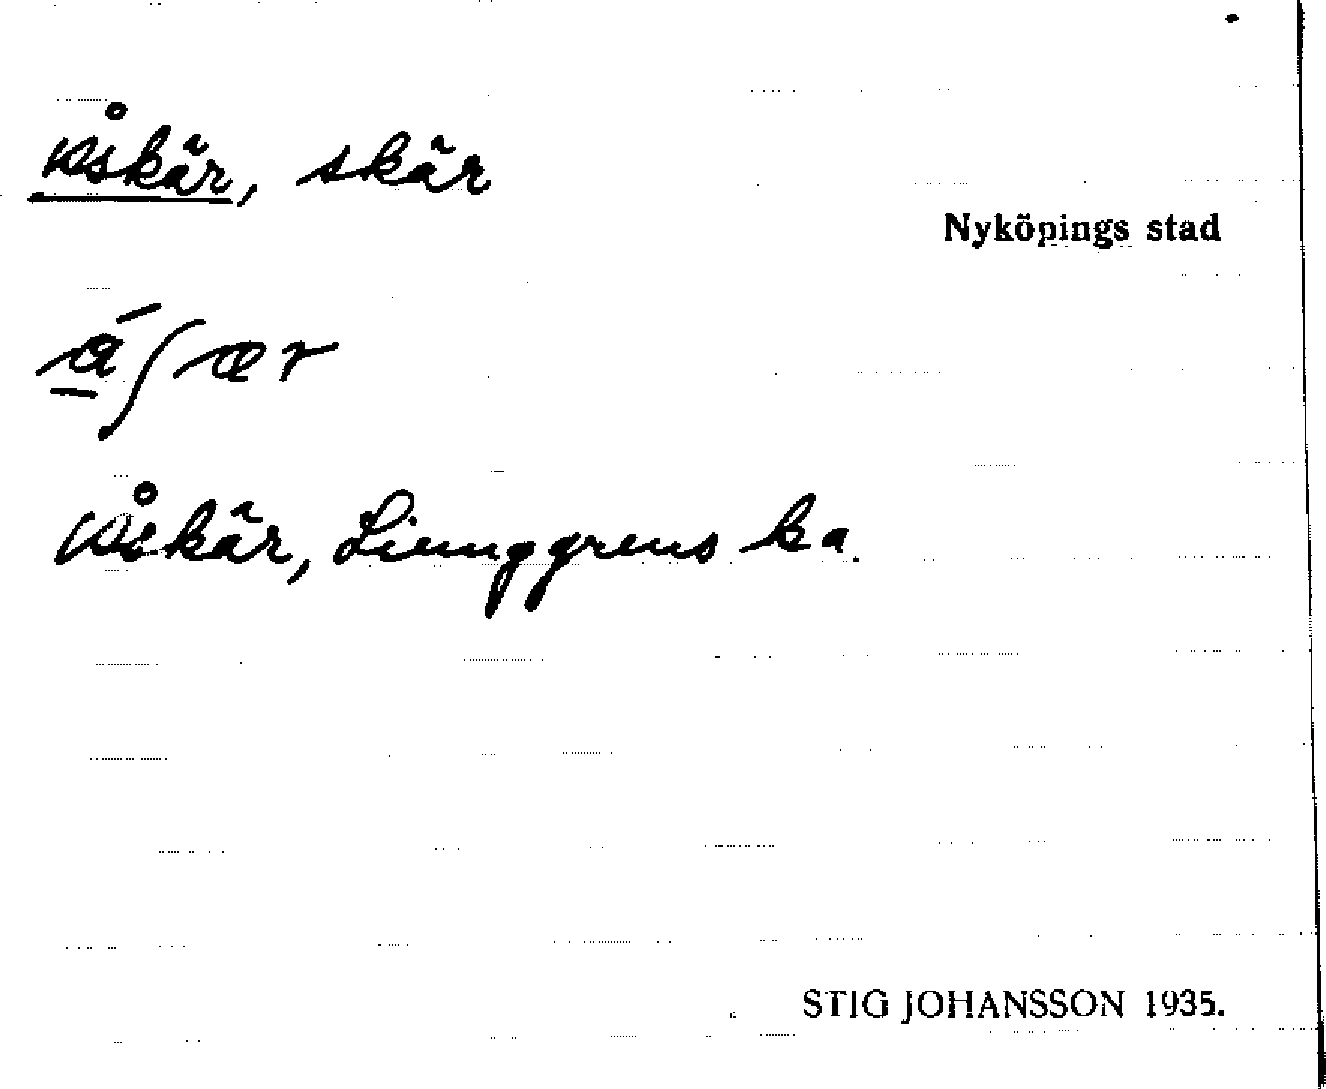 Åskär, skär
Nyköpings stad
á̱ʃær
Åskär, Liunggrens ka.
STIG JOHANSSON 1935.